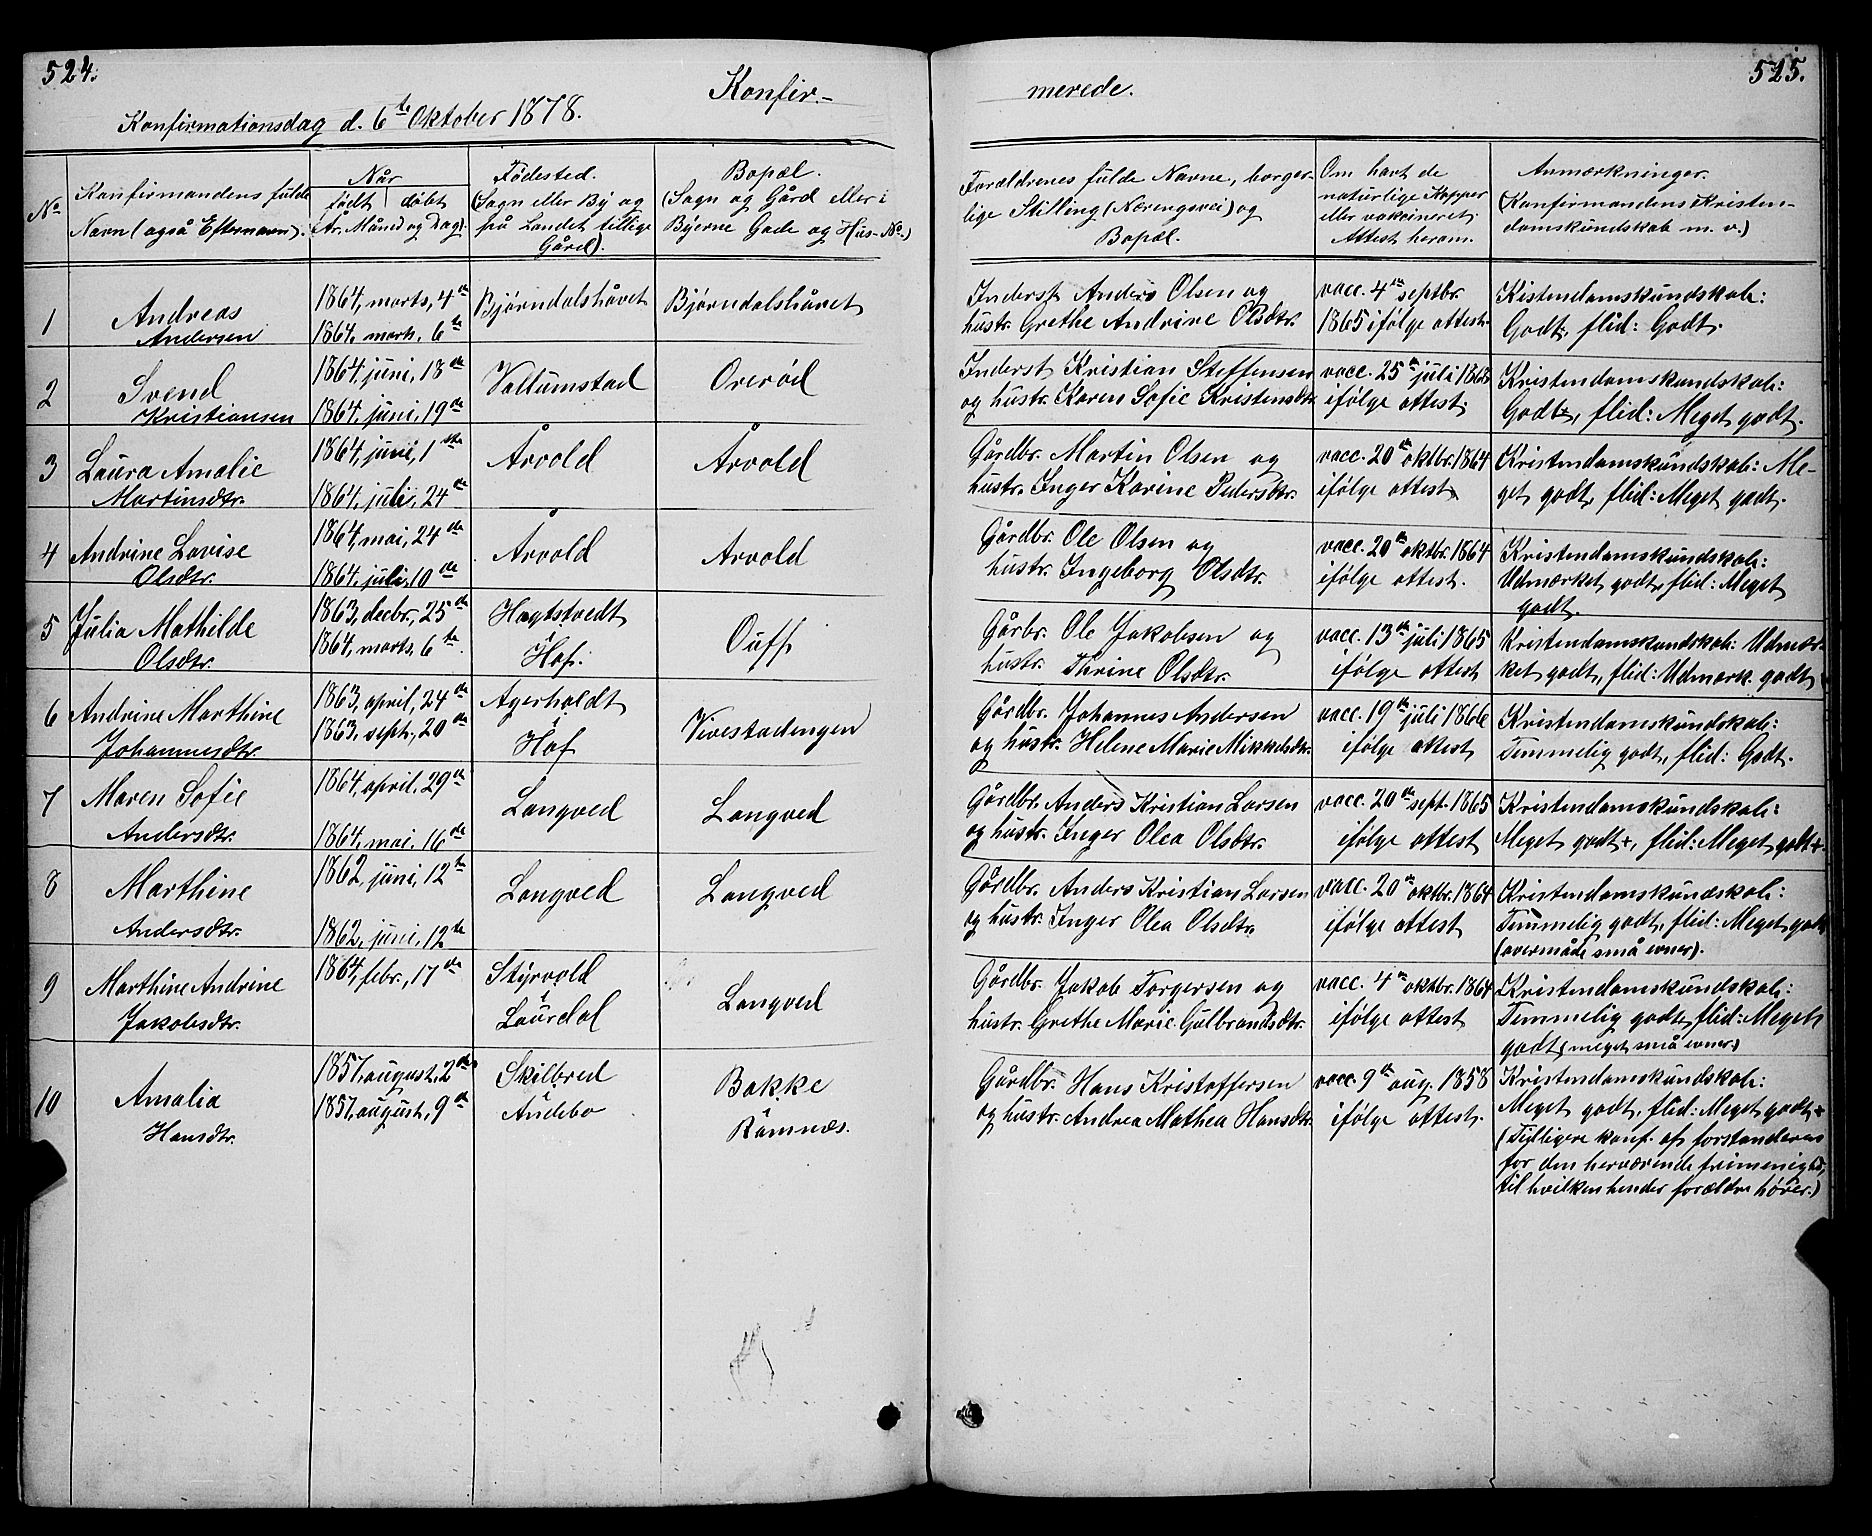 524.
Konfir-
Konfirmationsdag d. 6te Oktober 1878.
No
Konfirmandens fulde
Navn (også Efternavn).
Når
født | døbt
(År, Måned og Dag).
Fødested.
(Sogn eller By og
på Landet tillige
Gård).
Bopæl.
(Sogn og Gård eller i
Byerne Gade og Hus-No.)
1
Andreas
Andersen
1864, marts, 4de
1864, marts, 6te
Bjørndalshåvet
Bjørndalshåvet
2
Svend
Kristiansen
1864, juni, 18de
1864, juni, 19de
Valtumstad
Overød
3
Laura Amalie
Martinsdtr.
1864, juni, 1ste
1864, juli, 24de
Årvold
Årvold
4
Andrine Lovise
Olsdtr.
1864, mai, 24de
1864, juli, 10de
Årvold
Arvold
5
Julia Mathilde
Olsdtr.
1863, decbr., 25de
1864, marts, 6te
Hagtstvedt
i
Hof.
Ouff
6
Andrine Marthine
Johannesdtr.
1863, april, 24de
1863, sept., 20de
Agerholdt
i
Hof
Vivestadengen
7
Maren Sofie
Andersdtr.
1864, april, 29de
1864, mai, 16de
Langved
Langved
8
Marthine
Andersdtr.
1862, juni, 12te
1862, juni, 12te
Langved
Langved
9
Marthine Andrine
Jakobsdtr.
1864, febr., 17de
Styrvold
i
Laurdal
Langved
10
Amalia
Hansdtr.
1857, august, 2den
1857, august, 9de
Skilbred
i
Andebo
Bakke
i
Ramnæs.
525.
merede.
Forældrenes fulde Navne, borger-
lige Stilling (Næringsvei) og
Bopæl.
Om havt de
naturlige Kopper
eller vakcineret,
Attest herom.
Anmærkninger.
(Konfirmandens Kristen-
domskundskab m. v.)
Inderst Anders Olsen og
hustr. Grethe Andrine Olsdtr.
vacc. 4de septbr.
1865 ifølge attest.
Kistendomskundskab:
Godt, flid: Godt.
Inderst Kristian Steffensen
og hustr. Karen Sofie Kristensdtr.
vacc. 25de juli 1865
ifølge attest.
Kristendomskundskab:
Godt+, flid: Meget godt.
Gårdbr. Martin Olsen og
hustr. Inger Karine Pedersdtr.
vacc. 20de oktbr. 1864
ifølge attest.
Kristendomskundskab: Me-
get godt, flid: Meget godt.
Gårdbr. Ole Olsen og
hustr. Ingeborg Olsdtr.
vacc. 20de oktbr. 1864
ifølge attest.
Kristendomskundskab:
Udmærket godt, flid: Meget
godt.
Gårbr. Ole Jakobsen og
hustr. Thrine Olsdtr.
vacc. 13de juli 1865
ifølge attest
Kristendomskundskab: Udmær-
ket godt, flid: Udmærk. godt
Gårdbr. Johannes Andersen
og hustr. Helene Marie Mikkelsdtr.
vacc. 19de juli 1866
ifølge attest
Kristendomskundskab:
Temmelig godt, flid: Godt.
Gårdbr. Anders Kristian Larsen
og hustr. Inger Olea Olsdtr.
vacc. 20de sept. 1865
ifølge attest
Kristendomskundskab:
Meget godt+, flid: Meget godt+.
Gårdbr. Anders Kristian Larsen
og hustr. Inger Olea Olsdtr.
vacc. 20de oktbr. 1864
ifølge attest
Kristendomskundskab:
Temmelig godt, flid: Meget godt
(overmåde små evner).
Gårdbr. Jakob Torgersen og
hustr. Grethe Marie Gulbrandsdtr.
vacc. 4de oktbr. 1864
ifølge attest
Kristendomskundskab:
Temmelig godt, flid: Meget
godt (meget små evner.)
Gårdbr. Hans Kristoffersen
og hustr. Andrea Mathea Hansdtr.
vacc. 9de aug. 1858
ifølge attest.
Kristendomskundskab:
Meget godt, flid: Meget godt+
(Tidligere konf. af forstanderen
for den herværende frimenighed,
til hvilken hendes forældre hører.)